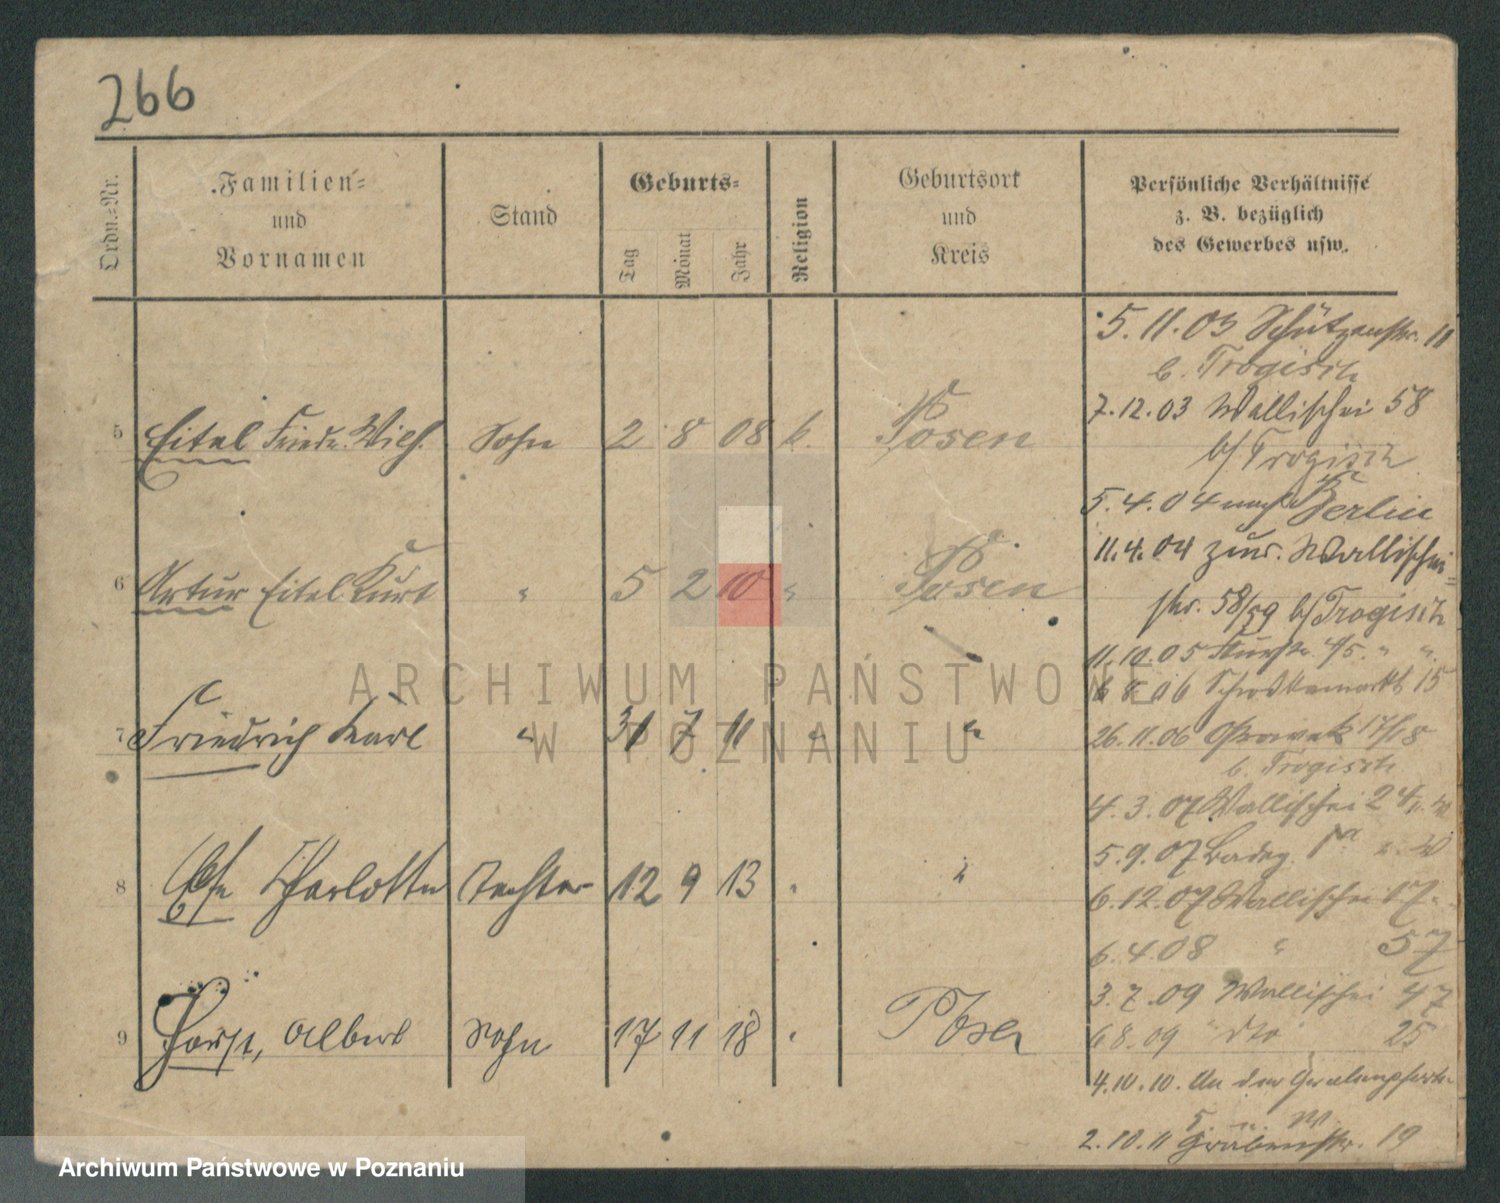 266
Ordn.-Nr.
Familien-
und
Vornamen
Stand
Geburts-
Tag
Monat
Jahr
Religion
Geburtsort
und
Kreis
Persönliche Verhältnisse
z. B. bezüglich
des Gewerbes usw.
5 Eitel Friedr. Wilh. Sohn 2 8 08 k. Posen
6 Artur Eitel Kurt " 5 2 10 " Posen
7 Friedrich Karl " 31 7 11 " "
8 Else Charlotte Tochter 12 9 13 " "
9 Horst, Albert Sohn 17 11 18 " Posen
5.11.03 Schützenstr. 11
b. Trogisch
7.12.03 Wallischei 58
b/ Trogisch
5.4.04 nach Berlin
11.4.04 zur. Wallischei-
str. 58/59 b/ Trogisch
11.10.05 4/5. " "
06 15
26.11.06 17/18
b. Trogisch
4.3.07 Wallischei 24
5.9.07
6.12.07 Wallischei 17
6.4.08 " 57
3.7.09 Wallischei 47
6.8.09 " dto 25
4.10.10. An der
2.10.11 Gräbenstr. 19
ARCHIWUM PAŃSTWOWE
W POZNANIU
Archiwum Państwowe w Poznaniu